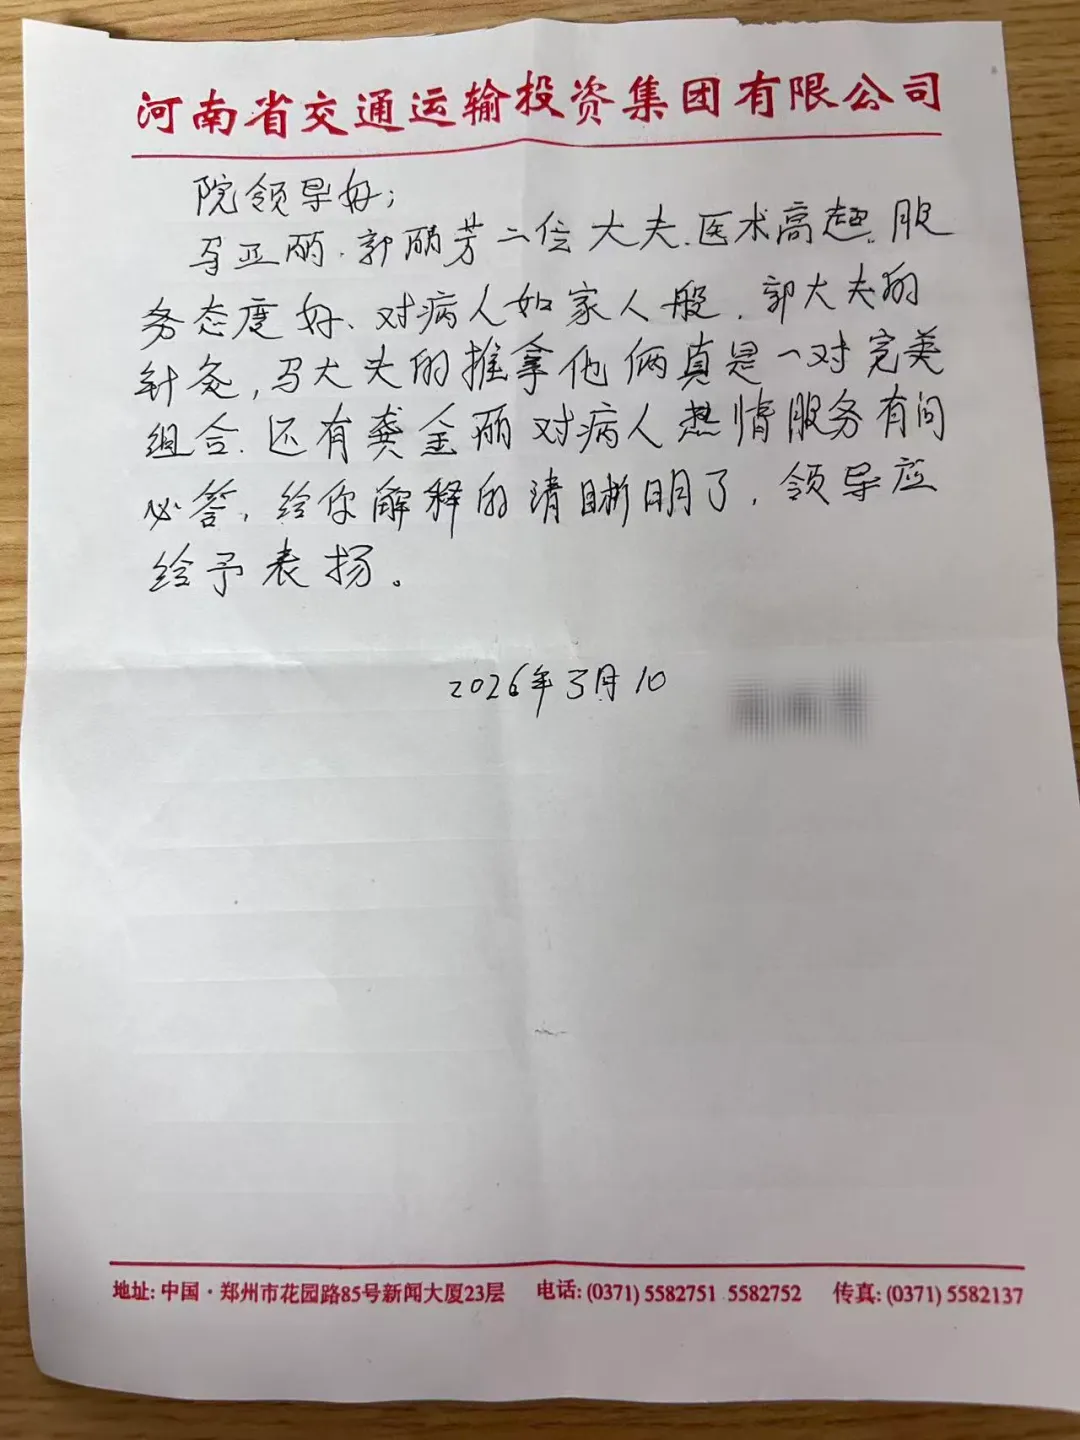 河南省交通运输投资集团有限公司
院领导好；
马亚丽、郭丽芳二位大夫.医术高超.服
务态度好、对病人如家人般.郭大夫的
针灸,马大夫的推拿他俩真是一对完美
组合.还有龚金丽对病人热情服务有问
必答,给你解释的清晰明了,领导应
给予表扬。
2026年3月10
地址:中国·郑州市花园路85号新闻大厦23层 电话:(0371) 5582751 5582752 传真:(0371) 5582137